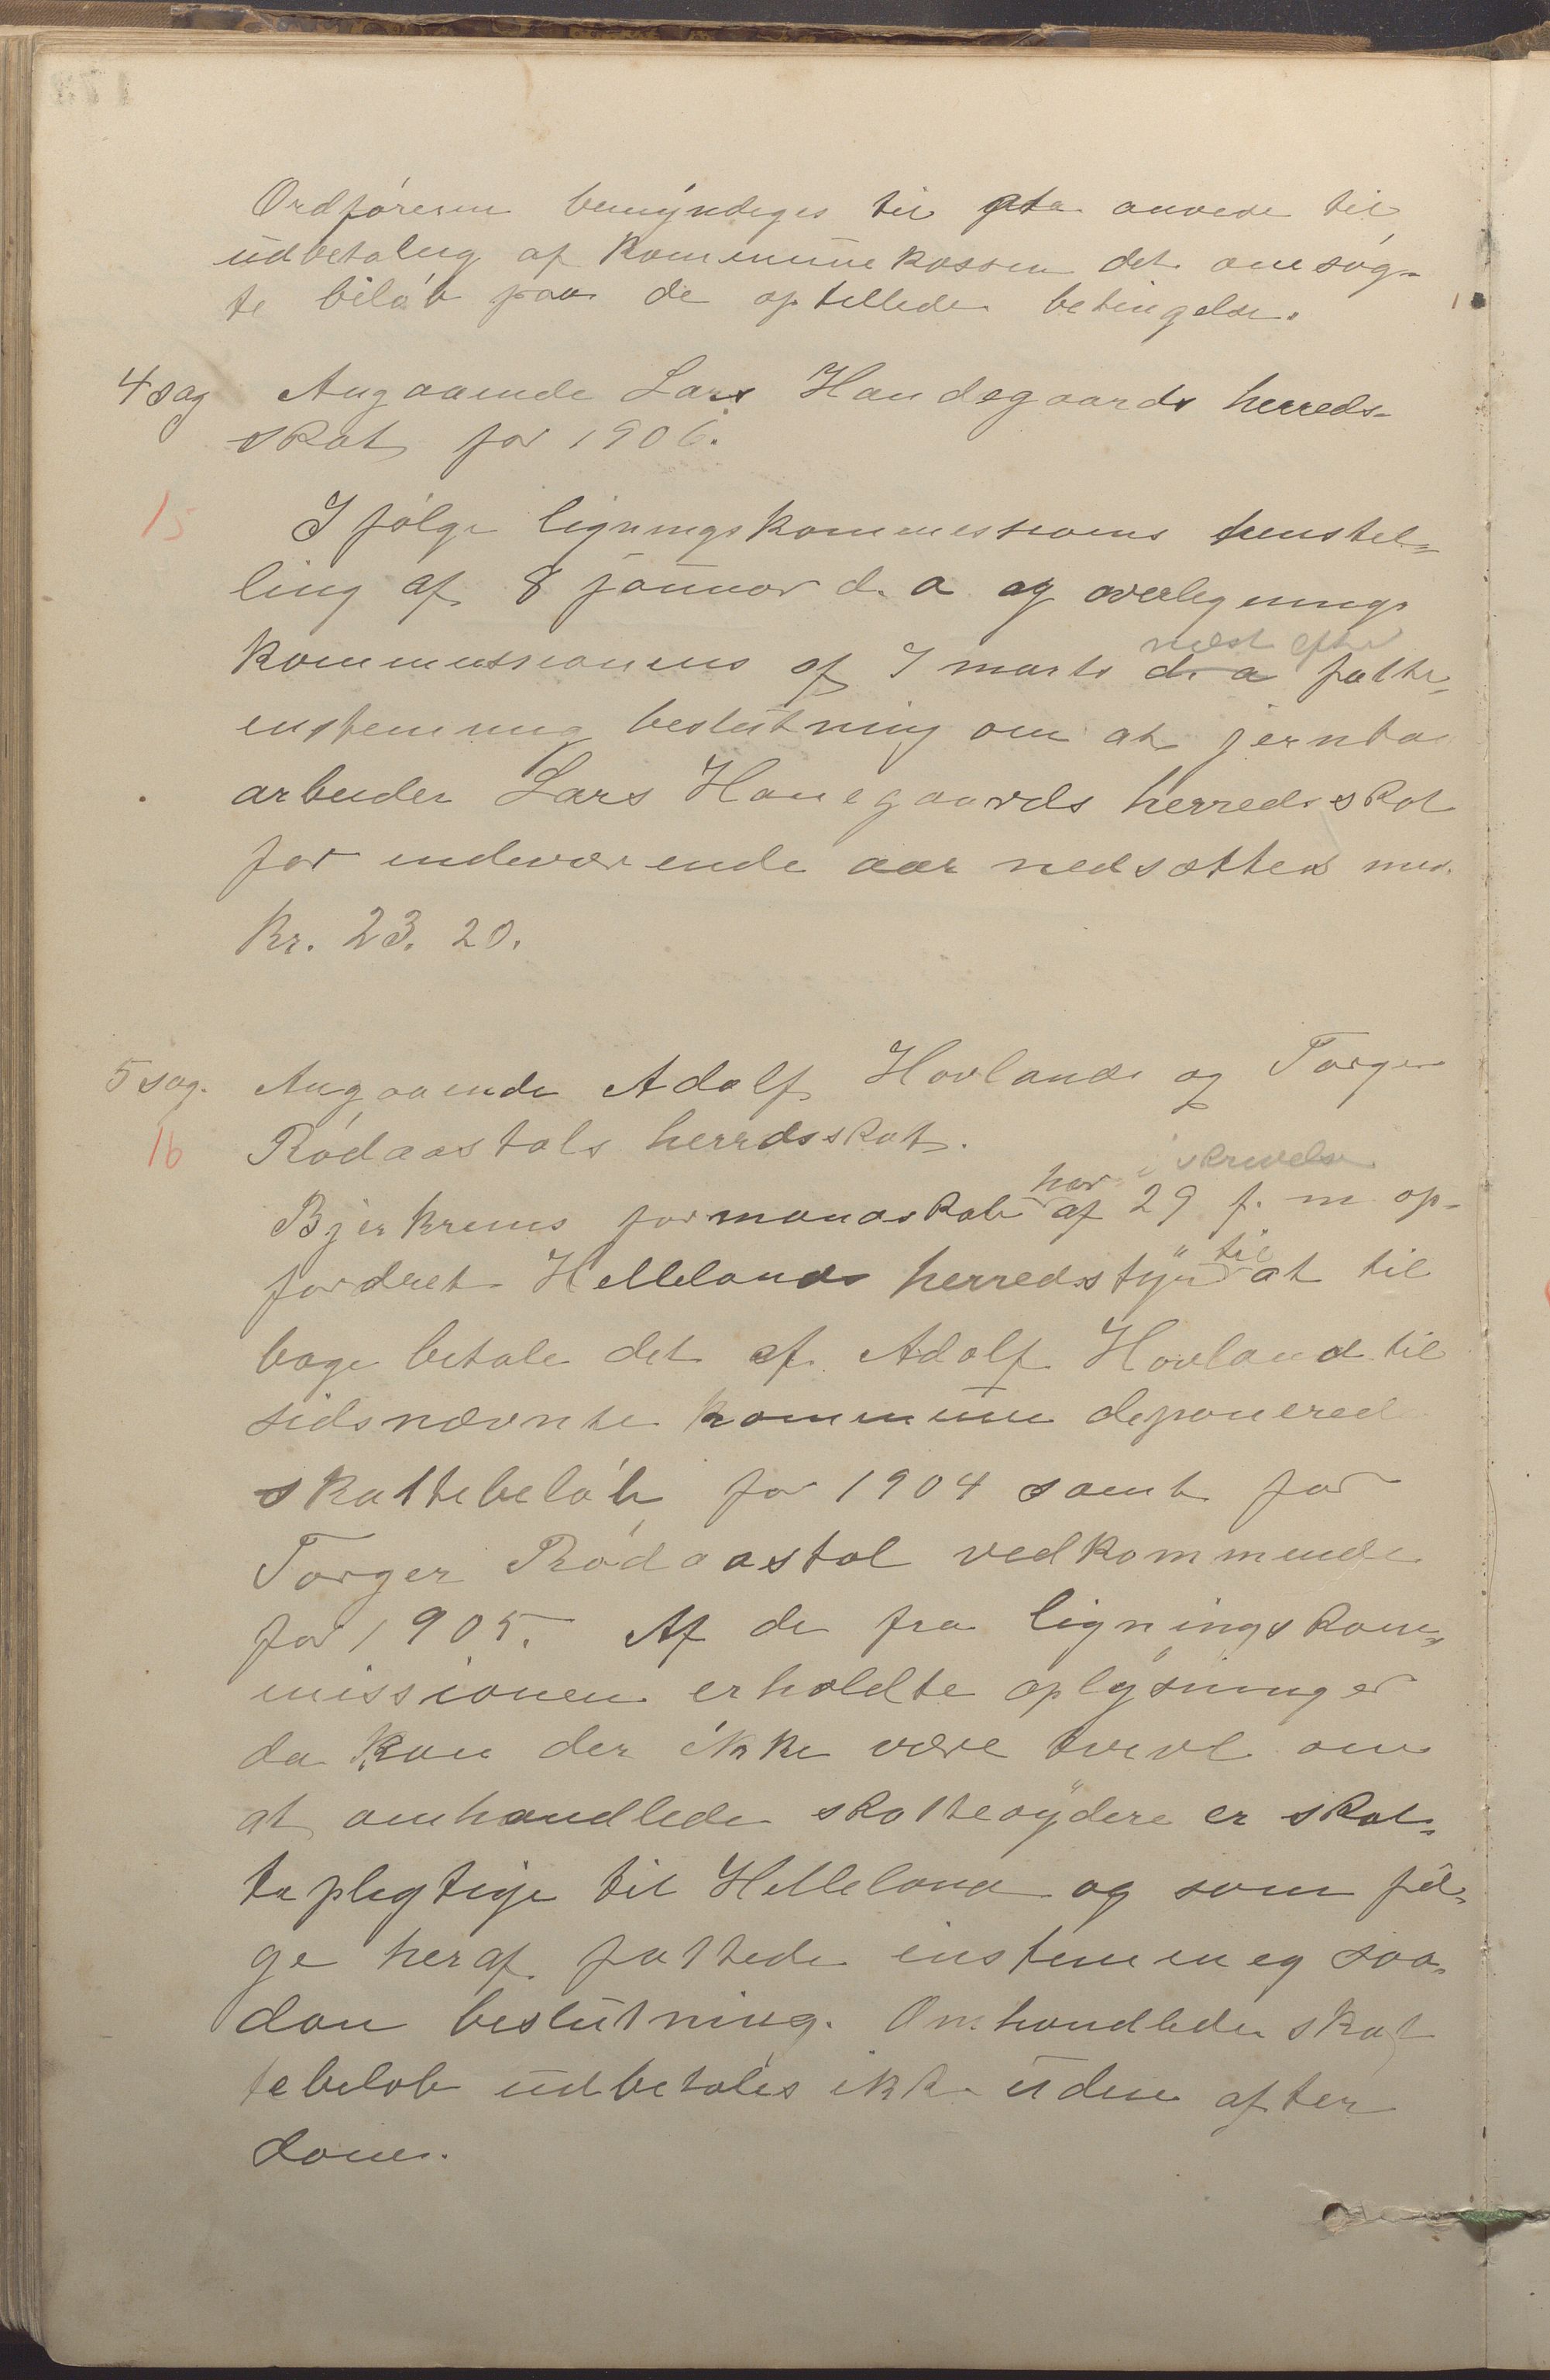 Ordføreren bemyndiges til at anvise til
udbetaling af kommunekassen det ansøg-
te beløb paa de optellede betingelse.
4 sag Angaaende Lars Handegaards herreds-
skat for 1906.
15
I følge ligningskommissions henstel-
ling af 8 januar d. a og overlignings
næst efter
kommissionens af 7 marts d. a fatte
enstemmig beslutning om at jernba
arbeider Lars Hanegaards herredsskat
for indeværende aar nedsættes med
Kr. 23. 20.
5 sag. Angaaende Adolf Hovlands og Torger
16 Rødaastøls herrdsskat.
har i skrivelse
Bjerkrems formandskab af 29 f. m op-
til
fordret Hellelands herredsstyre at til
bage betale det af Adolf Hovland til
sidsnævnte kommune deponered
skattebeløb for 1904 samt for
Torger Rødaastøl vedkommende
for 1905. Af de fra ligningskom-
missionen erholdte oplysninger
da kan der ikke være tvivl om
at omhandlede skatteoydere er skat-
teplegtige til Helleland og som føl-
ge heraf fattede enstemmeg saa-
dan beslutning. Omhandlede skat
tebeløb udbetales ikke uden after
dom.